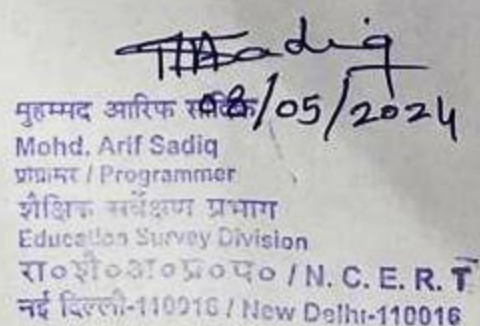 MASadiq
08/05/2024
मुहम्मद आरिफ सादिक
Mohd. Arif Sadiq
प्रोग्रामर / Programmer
शैक्षिक सर्वेक्षण प्रभाग
Education Survey Division
रा०शै०अ०प्र०प० / N. C. E. R. T
नई दिल्ली-110016 / New Delhi-110016